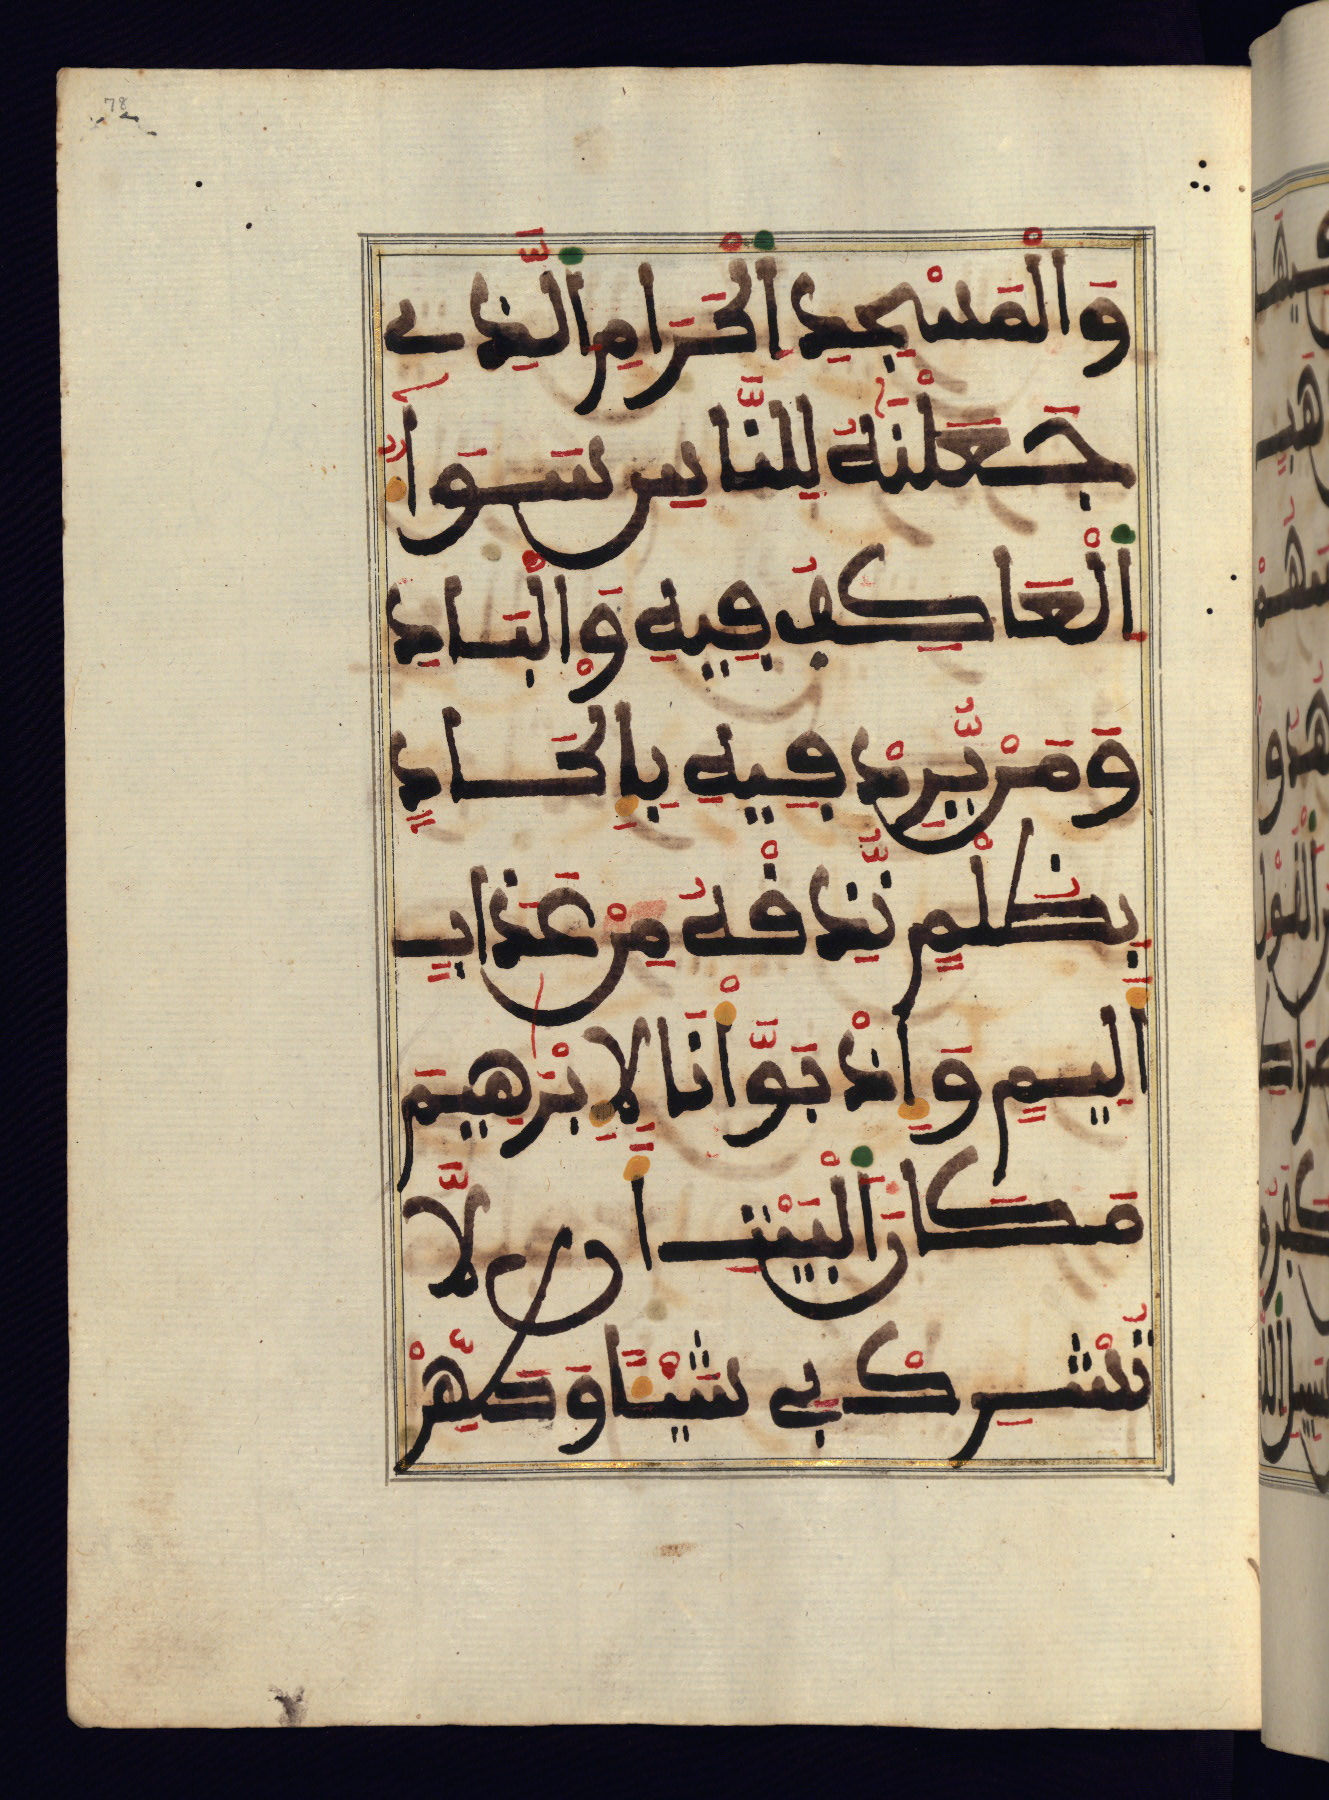 78
وَالْمَسْجِدِ اِ۬لْحَرَامِ اِ۬لَّذِے
جَعَلْنَٰهُ لِلنَّاسِ سَوَآءٌ
اِ۬لْعَٰاكِفُ فِيهِ وَالْبَادِ
وَمَنْ يُّرِدْ فِيهِ بِإِلْحَادٍ
بِظُلْمٍ نُّذِقْهُ مِنْ عَذَابٍ
أَلِيمٍ وَإِذْ بَوَّأْنَا لِإِبْرَٰهِيمَ
مَكَانَ اَ۬لْبَيْتِ أَن لَّا
تُشْرِكْ بِي شَيْـًٔا وَطَهِّرْ